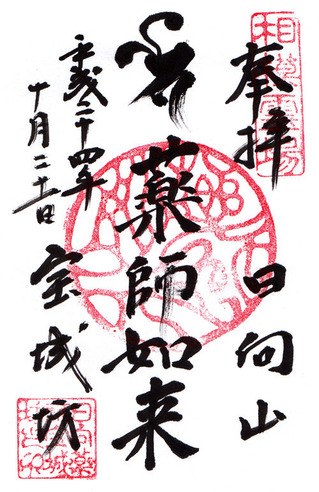 奉拝
日向山
薬師如来
平成二十四年
十月二十一日
宝城坊